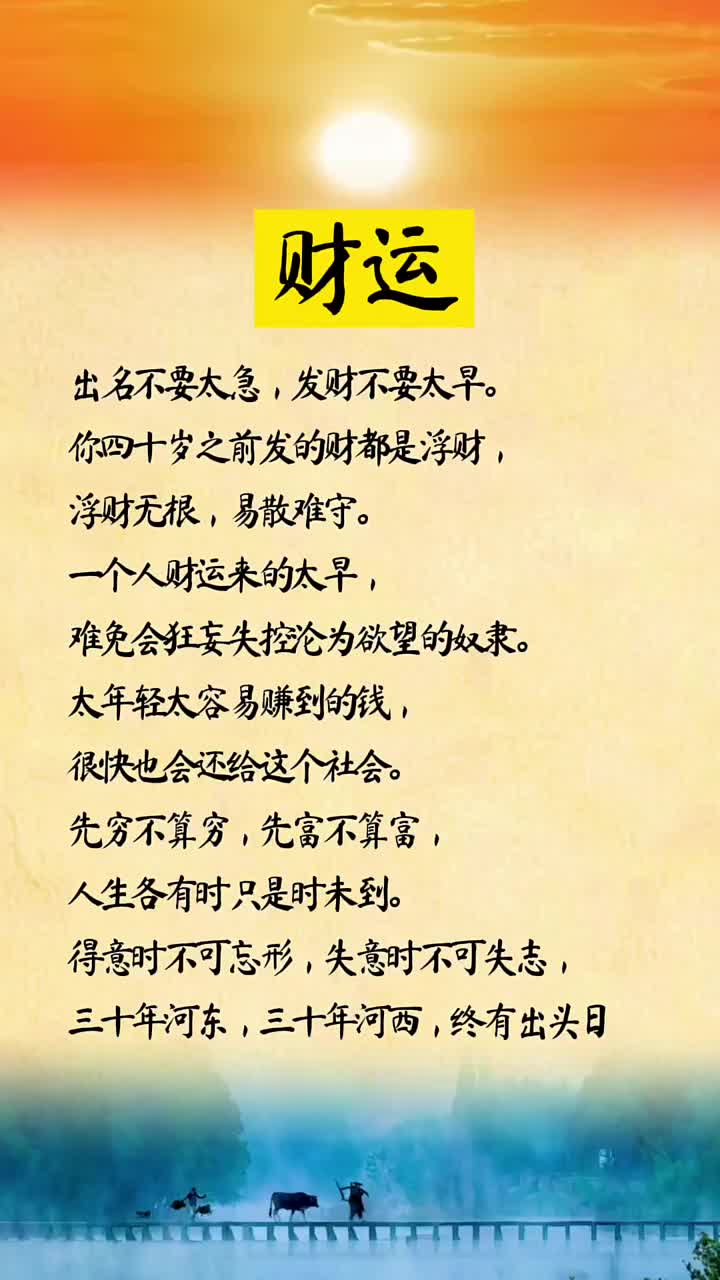 财运
出名不要太急，发财不要太早。
你四十岁之前发的财都是浮财，
浮财无根，易散难守。
一个人财运来的太早，
难免会狂妄失控沦为欲望的奴隶。
太年轻太容易赚到的钱，
很快也会还给这个社会。
先穷不算穷，先富不算富，
人生各有时只是时未到。
得意时不可忘形，失意时不可失志，
三十年河东，三十年河西，终有出头日